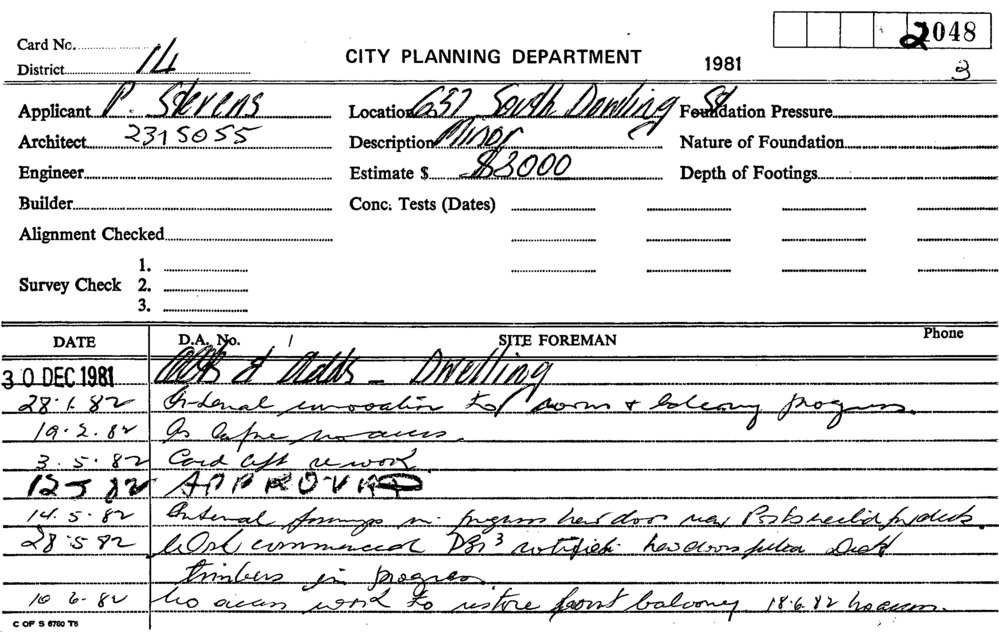 2048
Card No.
District 14
CITY PLANNING DEPARTMENT
1981
3
Applicant P. Stevens
Location 637 South Dowling St
Foundation Pressure
Architect 2315055
Description Minor
Nature of Foundation
Engineer
Estimate $ $3000
Depth of Footings
Builder
Conc. Tests (Dates)
Alignment Checked
Survey Check
1.
2.
3.
DATE
D.A. No.
SITE FOREMAN
Phone
30 DEC 1981 & Adds - Dwelling
28.1.82 renovation to rooms & balcony progress.
19.2.82 As before no access.
3.5.82 Card left re work.
12 5 82 APPROVED
14.5.82 in progress new door
28.5.82 Work commenced new doors Deck
timbers in progress.
10.6.82 No access work to restore front balcony. 18.6.82 No access.
C OF S 6760 T6